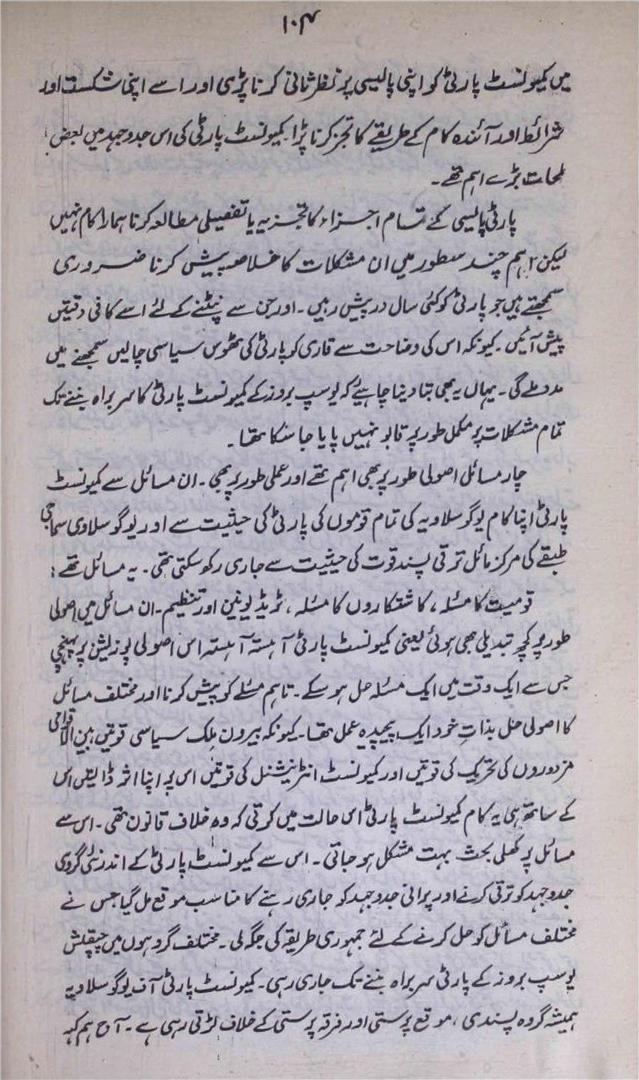 ۱۰۴
میں کمیونسٹ پارٹی کو اپنی پالیسی پر نظر ثانی کرنا پڑی اور اسے اپنی شکست اور
شرائط اور آئندہ کام کے طریقے کا تجزیہ کرنا پڑا۔ کمیونسٹ پارٹی کی اس جدوجہد میں بعض
لمحات بڑے اہم تھے۔
پارٹی پالیسی کے تمام اجزاء کا تجزیہ یا تفصیلی مطالعہ کرنا ہمارا کام نہیں
لیکن ہم چند سطور میں ان مشکلات کا خلاصہ پیش کرنا ضروری
سمجھتے ہیں جو پارٹی کو کئی سال درپیش رہیں۔ اور جن سے نپٹنے کے لئے اسے کافی دقیتں
پیش آئیں۔ کیونکہ اس کی وضاحت سے قاری کو پارٹی کی ٹھوس سیاسی چالیں سمجھنے میں
مدد ملے گی۔ یہاں یہ بھی بتا دینا چاہیئے کہ یوسپ بروز کے کمیونسٹ پارٹی کا سربراہ بننے تک
تمام مشکلات پر مکمل طور پر قابو نہیں پایا جا سکا تھا۔
چار مسائل اصولی طور پر بھی اہم تھے اور عملی طور پر بھی۔ ان مسائل سے کمیونسٹ
پارٹی اپنا کام یوگوسلاویہ کی تمام قوموں کی پارٹی کی حیثیت سے اور یوگوسلاوی سماجی
طبقے کی مرکز مائل ترقی پسند قوت کی حیثیت سے جاری رکھ سکتی تھی۔ یہ مسائل تھے :
قومیت کا مسئلہ ، کاشتکاروں کا مسئلہ ، ٹریڈ یونین اور تنظیم۔ ان مسائل میں اصولی
طور پر کچھ تبدیلی بھی ہوئی یعنی کمیونسٹ پارٹی آہستہ آہستہ اس اصولی پوزیشن پر پہنچی
جس سے ایک وقت میں ایک مسئلہ حل ہو سکے۔ تاہم مسئلے کو پیش کرنا اور مختلف مسائل
کا اصولی حل بذاتِ خود ایک پیچیدہ عمل تھا۔ کیونکہ بیرون ملک سیاسی قوتیں بین الاقوامی
مزدوروں کی تحریک کی قوتیں اور کمیونسٹ انٹرنیشنل کی قوتیں اس پر اپنا اثر ڈالتیں اس
کے ساتھ ہی یہ کام کمیونسٹ پارٹی اس حالت میں کرتی کہ وہ خلاف قانون تھی۔ اس سے
مسائل پر کھلی بحث بہت مشکل ہو جاتی۔ اس سے کمیونسٹ پارٹی کے اندر نئی گروہی
جدوجہد کو ترقی کرنے اور پرانی جدوجہد کو جاری رہنے کا مناسب موقع مل گیا جس نے
مختلف مسائل کو حل کرنے کے لئے جمہوری طریقہ کی جگہ لی۔ مختلف گروہوں میں چپقلش
یوسپ بروز کے پارٹی سربراہ بننے تک جاری رہی۔ کمیونسٹ پارٹی آف یوگوسلاویہ
ہمیشہ گروہ پسندی ، موقع پرستی اور فرقہ پرستی کے خلاف لڑتی رہی ہے۔ آج ہم کہہ